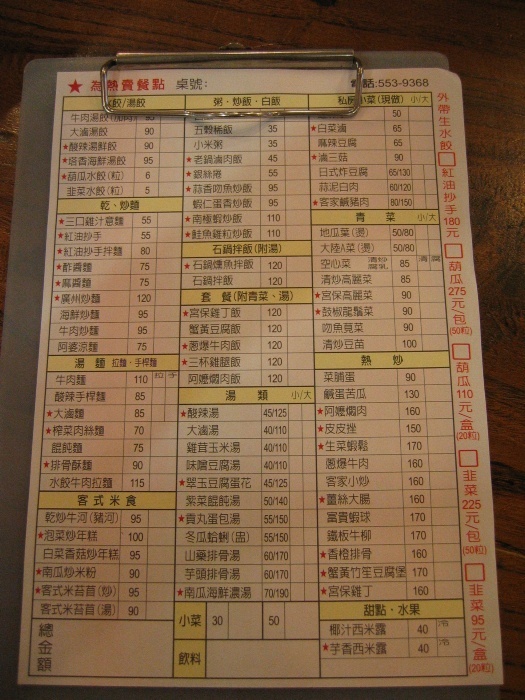 ★為熱賣餐點 桌號: 話:553-9368
餃/湯餃
牛肉湯餃 90
大滷湯餃 90
★酸辣湯鮮餃 90
★塔香海鮮湯餃 95
★葫瓜水餃(粒) 6
韭菜水餃(粒) 5
乾、炒麵
★三口雞汁意麵 55
★紅油抄手 55
★紅油抄手拌麵 80
★酢醬麵 75
★麻醬麵 75
★廣州炒麵 120
海鮮炒麵 95
牛肉炒麵 95
阿婆涼麵 75
湯麵 拉麵、手桿麵
牛肉麵 110 拉 手
酸辣手桿麵 85
★大滷麵 85
★榨菜肉絲麵 70
餛飩麵 75
★排骨酥麵 90
水餃牛肉拉麵 115
客式米食
乾炒牛河(豬河) 95
★泡菜炒年糕 100
白菜香菇炒年糕 95
★南瓜炒米粉 90
★客式米苔苜(炒) 95
客式米苔苜(湯) 90
總金額
粥、炒飯、白飯
五穀稀飯 35
小米粥 35
★老鍋滷肉飯 45
★銀絲捲 55
★蒜香吻魚炒飯 95
蝦仁蛋香炒飯 95
★南極蝦炒飯 110
★鮭魚雞粒炒飯 110
石鍋拌飯(附湯)
★石鍋燻魚拌飯 120
石鍋拌飯 120
套餐(附青菜、湯)
★宮保雞丁飯 120
蟹黃豆腐飯 120
★蔥爆牛肉飯 120
★三杯雞腿飯 120
阿嬤燜肉飯 120
湯類 小/大
★酸辣湯 45/125
大滷湯 40/110
雞茸玉米湯 40/110
味噌豆腐湯 40/110
★翠玉豆腐蛋花 45/125
紫菜餛飩湯 50/140
★貢丸蛋包湯 55/150
冬瓜蛤蜊(盅) 55/150
山藥排骨湯 60/170
芋頭排骨湯 60/170
★南瓜海鮮濃湯 70/190
小菜 30 50
飲料
私房小菜(現做) 小/大
50
★白菜滷 65
麻辣豆腐 65
★滷三菇 90
日式炸豆腐 65/130
蒜泥白肉 60/120
★客家鹹豬肉 80/150
青菜 小/大
地瓜葉(燙) 50/80
大陸A菜(燙) 50/80
空心菜 清炒 腐乳 85 清 腐
清炒高麗菜 85
★宮保高麗菜 90
★鼓椒龍鬚菜 90
吻魚莧菜 90
清炒豆苗 100
熱炒
菜脯蛋 90
鹹蛋苦瓜 130
★阿嬤燜肉 160
★皮皮挫 150
★生菜蝦鬆 170
蔥爆牛肉 160
客家小炒 160
★薑絲大腸 160
富貴蝦球 170
鐵板牛柳 170
★香橙排骨 160
★蟹黃竹笙豆腐堡 170
★宮保雞丁 160
甜點、水果
椰汁西米露 40 冷
★芋香西米露 40 冷
外帶生水餃
□紅油抄手180元
□葫瓜275元/包(50粒)
□葫瓜110元/盒(20粒)
□韭菜225元/包(50粒)
□韭菜95元/盒(20粒)